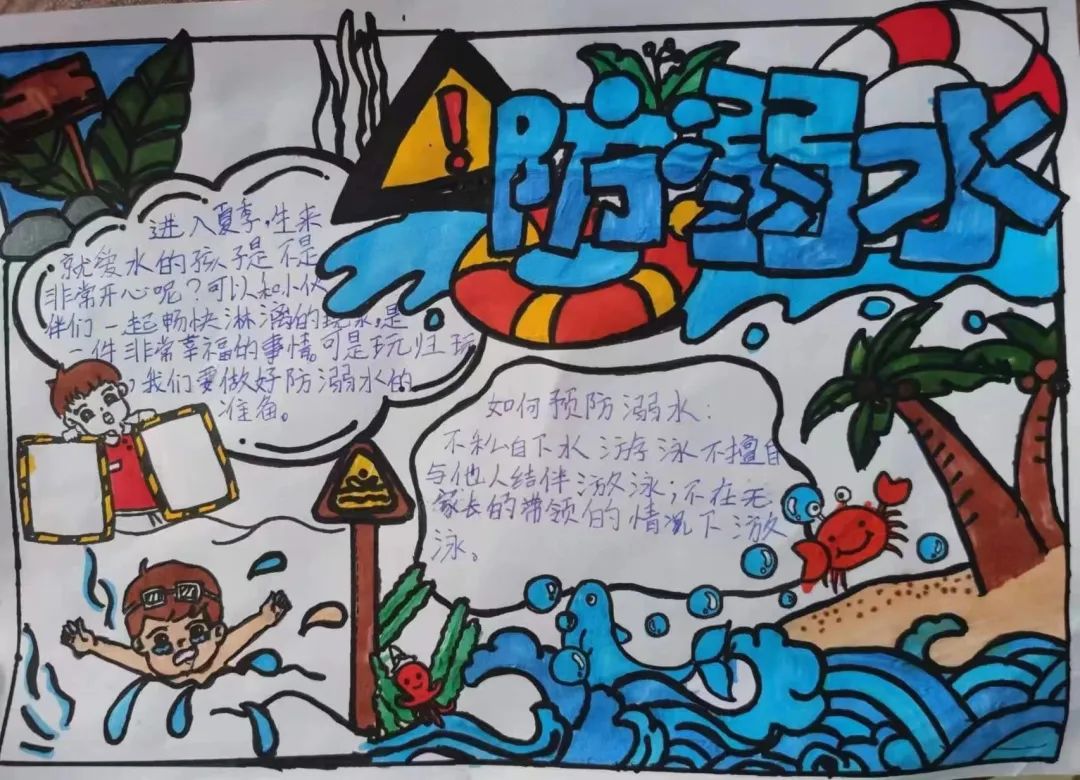 !
防溺水
进入夏季,生来
就爱水的孩子是不是
非常开心呢?可以和小伙
伴们一起畅快淋漓的玩水,是
一件非常幸福的事情。可是玩归玩
,我们要做好防溺水的
准备。
如何预防溺水:
不私自下水游泳不擅自
与他人结伴游泳;不在无
家长的带领的情况下游
泳。